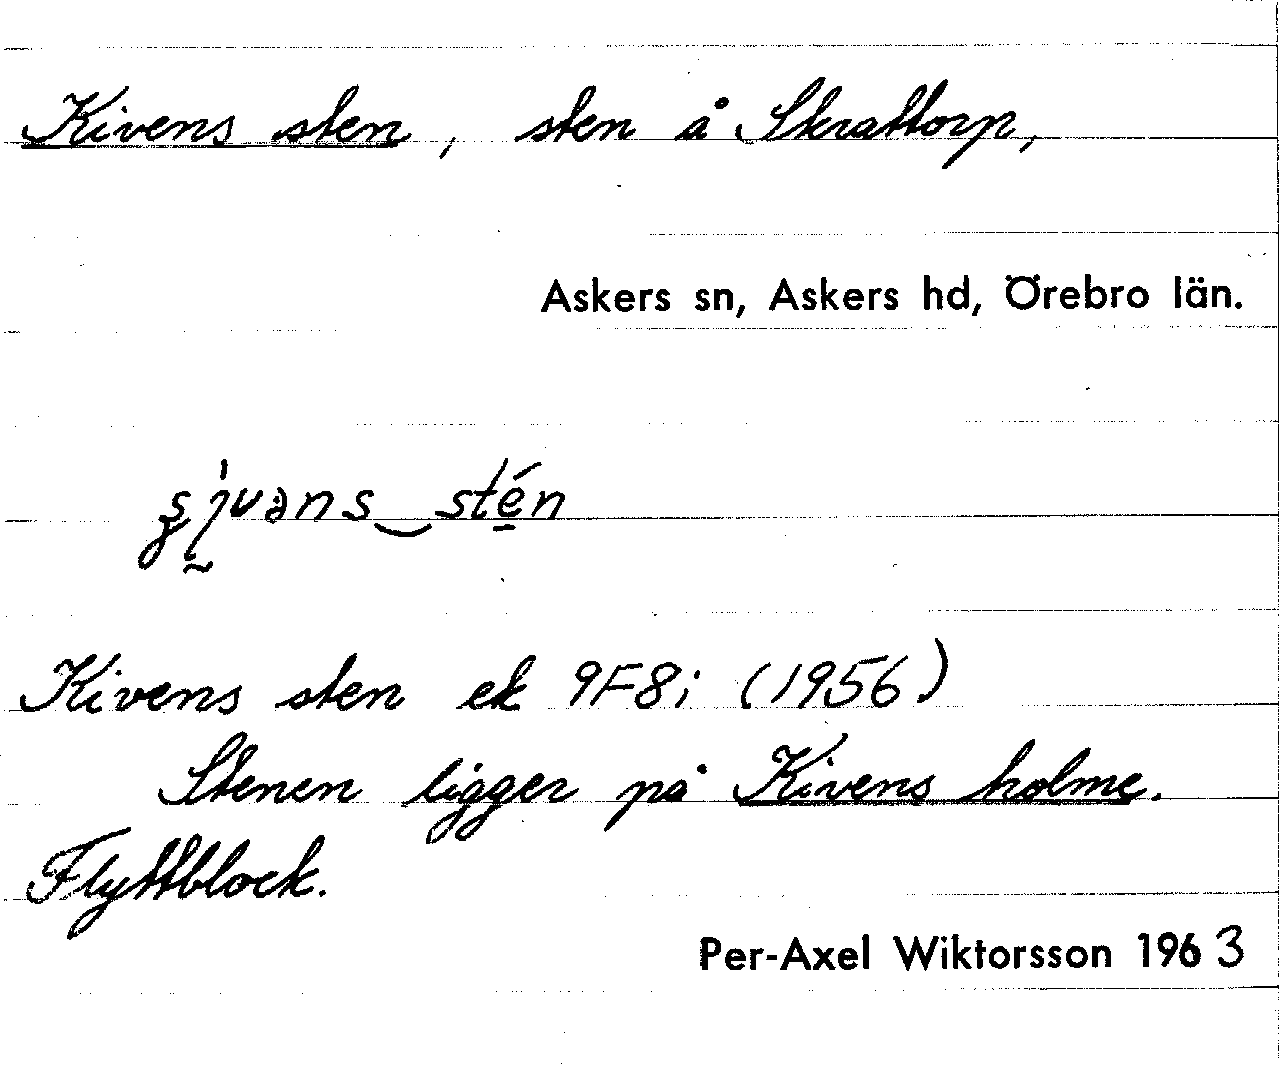 Kivens sten, sten å Skrattorp,
Askers sn, Askers hd, Örebro län.
Kivens sten ek 9F8i (1956)
Stenen ligger på Kivens holme.
Flyttblock.
Per-Axel Wiktorsson 1963